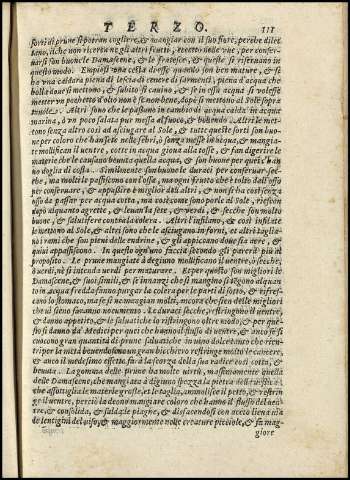 TERZO. 111
sorti di prune si potran cogliere, & mangiar con il suo fiore, perche dilet
tano, il che non riceva negli altri frutti, eccetto nelle uve, per conser-
varsi son buone le Damascene, & le fratesce, & queste si riservano in
questo modo. Empiasi una cesta d'esse quando son ben mature, & si
ha una caldara piena di lescia di cenere di sarmenti, piglia acqua che
bolla dove si mettono, & subito si cavino, & se in essa acqua si volesse
metter un pochetto d'olio non è se non bene, dopò si mettono al Sole sopra
tavole. Altri sono che le passano in cambio di acqua calda in acqua
marina, ò un poco salata pur messa al fuoco, & bollendo Altri le met-
tono senza altro così ad asciugar al Sole, & tutte queste sorti son buo-
ne per coloro che han sete nelle febri, ò senza messe in acqua, & mangia-
te mollificano il ventre, cotte in acqua giova alla tosse, & fan digerire le
materie che le causano bevuta quella acqua, & son buone per quei c'han
no doglia di costa. Similmente son buone le duraci per conservar sec-
che, ma molti le passiscono con l'osso, ma ogni frutto che è tolto dall'osso
per conservare, & appastire è migliore dell'altri, & non si ha così senza
uso da passar per acqua cotta, ma così come sono porle al Sole, risec
dopo alquanto aprette, & levan la sete, & verdi, & secche son molto
buone, & salutifere contra la colera. Altri l'infilano, & così infilate
le mettono al Sole, & altri sono che le asciugano in forni, et altri taglia-
no i rami che son pieni delle endrine, & gli appiccano dove sia aere, &
quivi appassiscono. In questo ogn'uno faccia secondo gli parerà più al
proposito. Le prune mangiate à degiuno mollificano il ventre, ò secche,
ò verdi, nè si intenda verdi per maturare. Et per questo son migliori le
Damascene, & suoi simili, & se innanzi che si mangino si tegono alquan
to in acqua fredda fanno purgar la colera per le parti di sotto, & rifres-
cano lo stomaco, ma se si ne mangian molte, ancora che sien delle migliori
che vi sieno faranno nocumento. Le duraci secche, restringono il ventre,
& danno appetito, & le salvatiche la ristringono oltre modo, & per que-
sto si danno da' Medici per quei che hanno il flusso di ventre, & anco se si
cuocono gran quantità di prune salvatiche in vino dolce tanto che ricu-
pri per la metà bevendosene un gran bicchiero restringe molto le camere,
& anco il medesimo effetto fà la scorza della sua radice così cotta, &
bevuta. La gomma delle prune ha molte virtù, massimamente quella
delle Damascene, che mangiata à digiuno spezza la pietra della vesica et
che assottiglia le materie grosse, et le taglia, ammollisce il petto, & restrin-
ge il ventre, perciò la deono mangiare coloro che hanno il flusso del ven-
tre, & consolida, & salda le piaghe, & disfacendosi con aceto lieva via
le lentigini del viso, & maggiormente nelle creature picciole, & fia mag-
giore